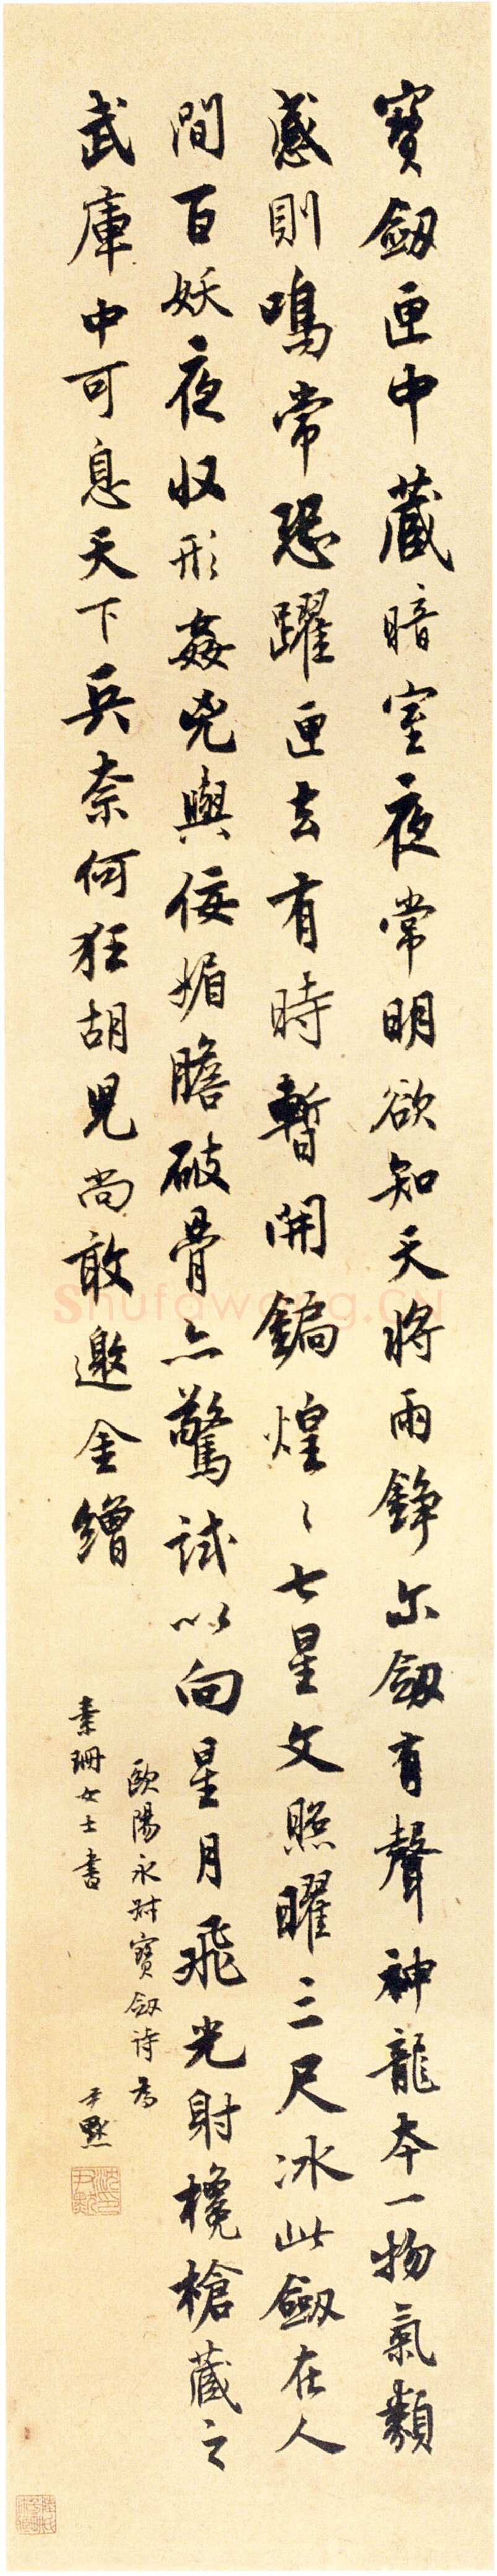 寶劔匣中藏暗室夜常明欲知天將雨錚尔劔有聲神龍本一物氣類
感則鳴常恐躍匣去有時暫開鐍煌〻七星文照曜三尺冰此劔在人
間百妖夜収形姦兇與佞媚膽破骨亦驚試以向星月飛光射欃槍藏之
武庫中可息天下兵奈何狂胡児尚敢邀金繒
歐陽永叔寶劔詩為
素珊女士書
尹默
沈尹默
Shufawang.CN